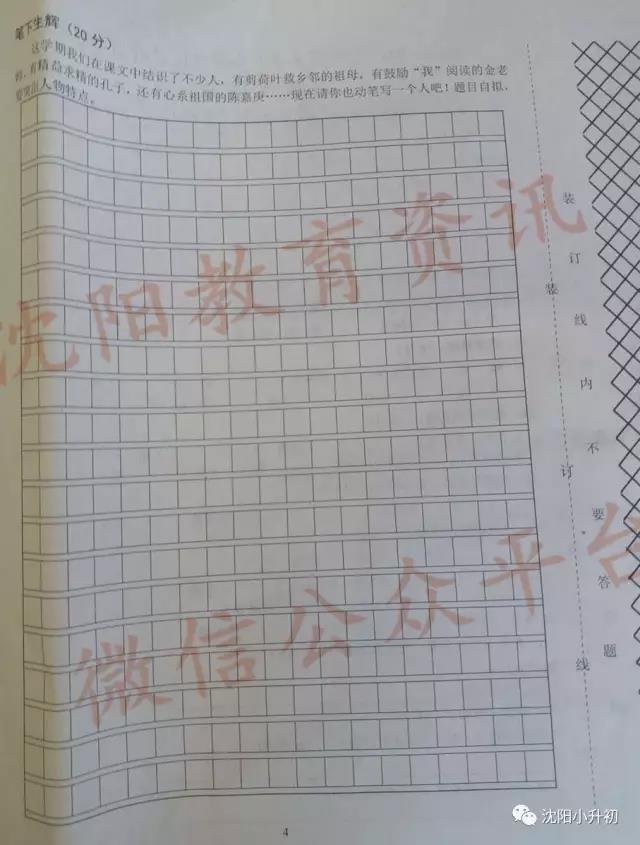 笔下生辉（20分）
这学期我们在课文中结识了不少人，有剪荷叶救乡邻的祖母，有鼓励“我”阅读的金老
师，有精益求精的孔子，还有心系祖国的陈嘉庚……现在请你也动笔写一个人吧！题目自拟，
要突出人物特点。
沈阳教育资讯
微信公众平台
装订线内不要答题
装订线
4
沈阳小升初